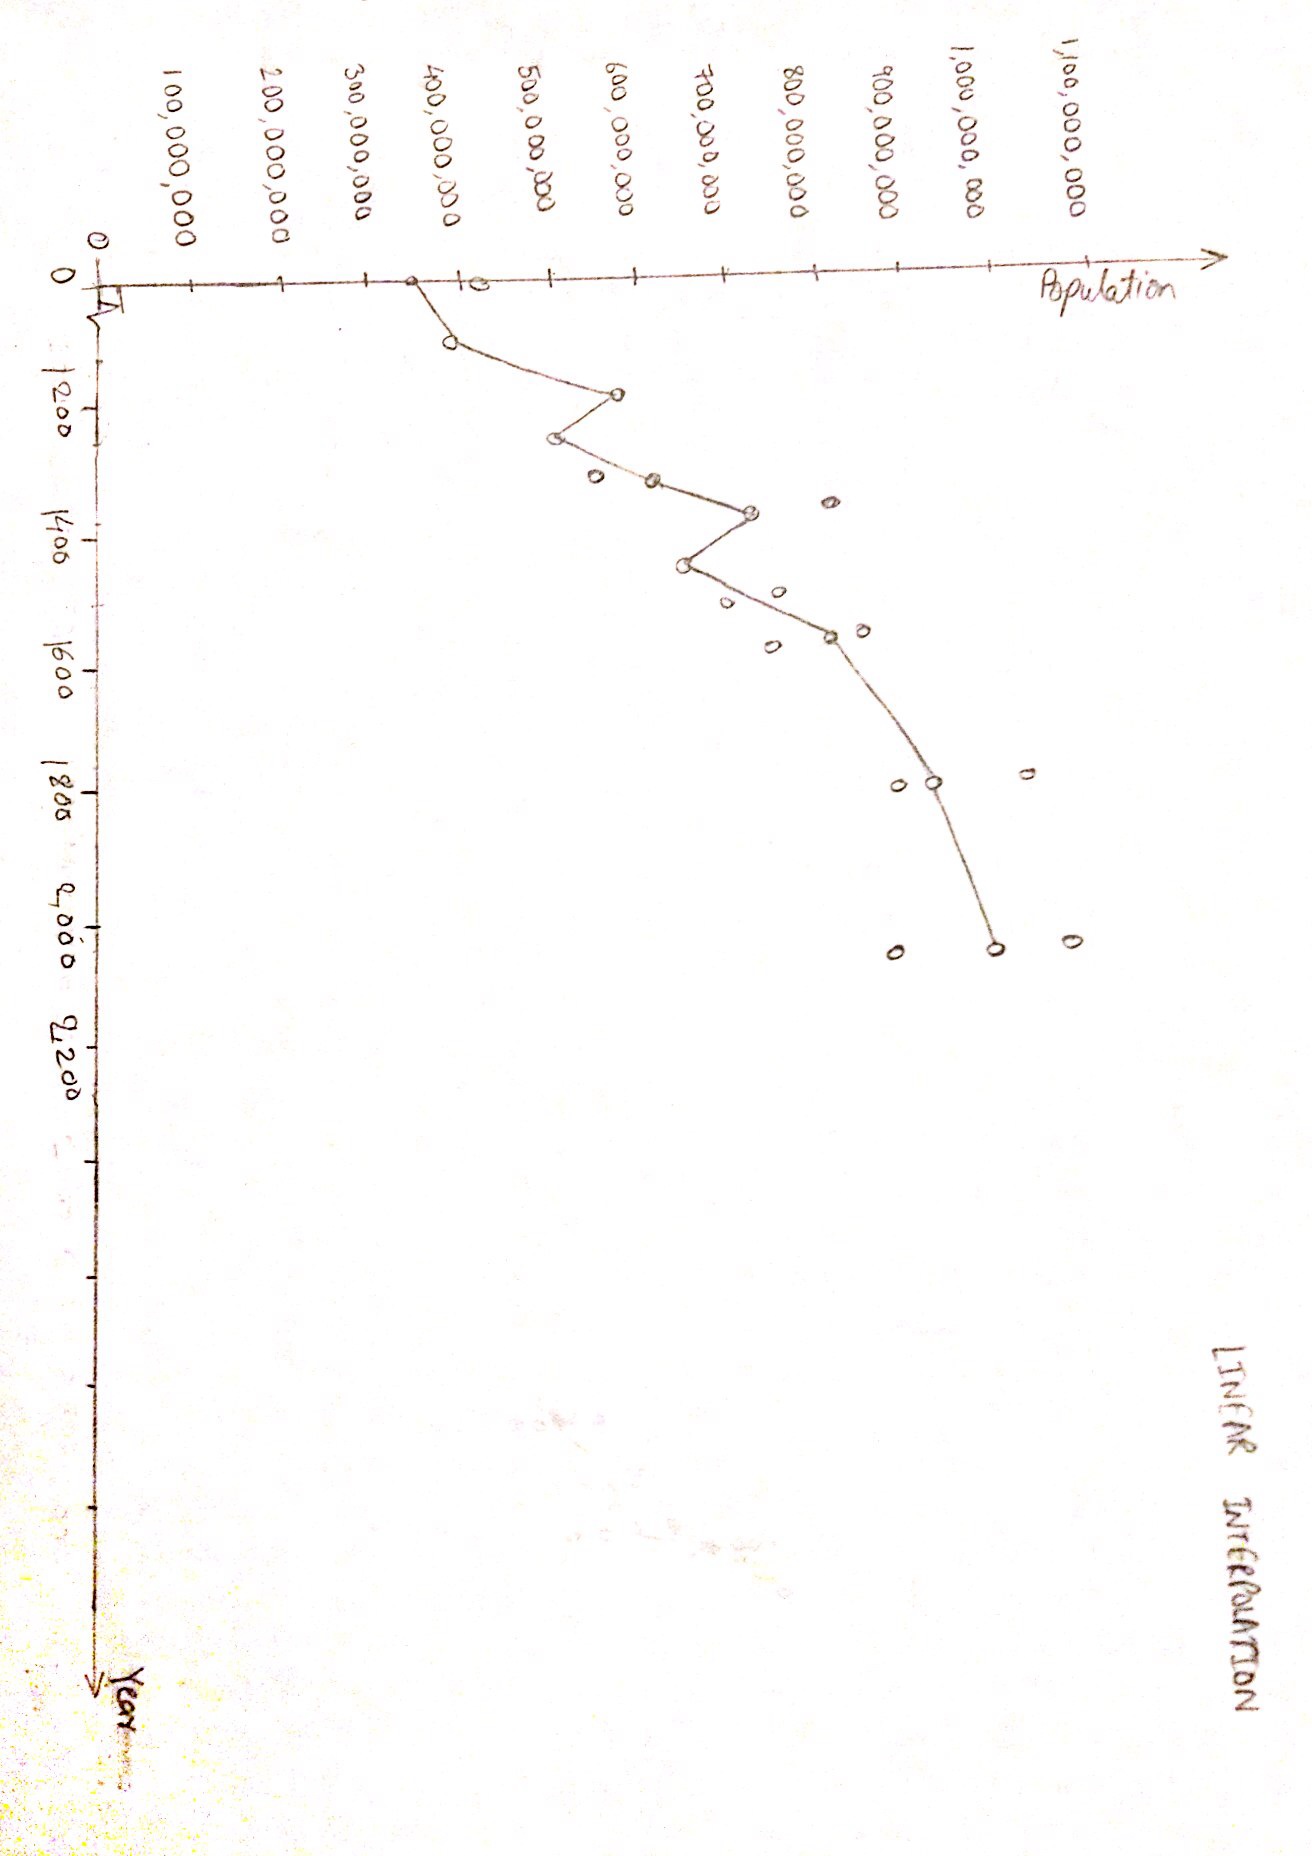 LINEAR INTERPOLATION
Population
1,100,000,000
1,000,000,000
900,000,000
800,000,000
700,000,000
600,000,000
500,000,000
400,000,000
300,000,000
200,000,000
100,000,000
0
0
1200
1400
1600
1800
2,000
2,200
Year